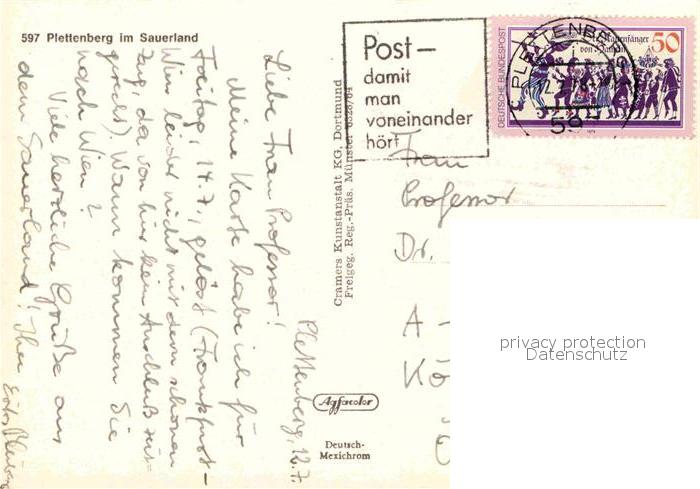 597 Plettenberg im Sauerland
Post –
damit
man
voneinander
hört
DEUTSCHE BUNDESPOST
Rattenfänger
von Hameln
50
PLETTENBERG
597
Cramers Kunstanstalt KG, Dortmund
Freigeg. Reg.-Präs. Münster
Plettenberg, 12.7.
Liebe Frau Professor!
Meine Karte habe ich für
Freitag, 14.7., gelöst (Frankfurt –
Wien leider nicht mit dem schönen
Zug, da von hier kein Anschluß zur-
). Wann kommen Sie
nach Wien?
Viele herzliche Grüße aus
dem Sauerland! Ihre
Frau
Professor
Dr.
A –
Kö
Agfacolor
Deutsch-
Mexichrom
privacy protection
Datenschutz